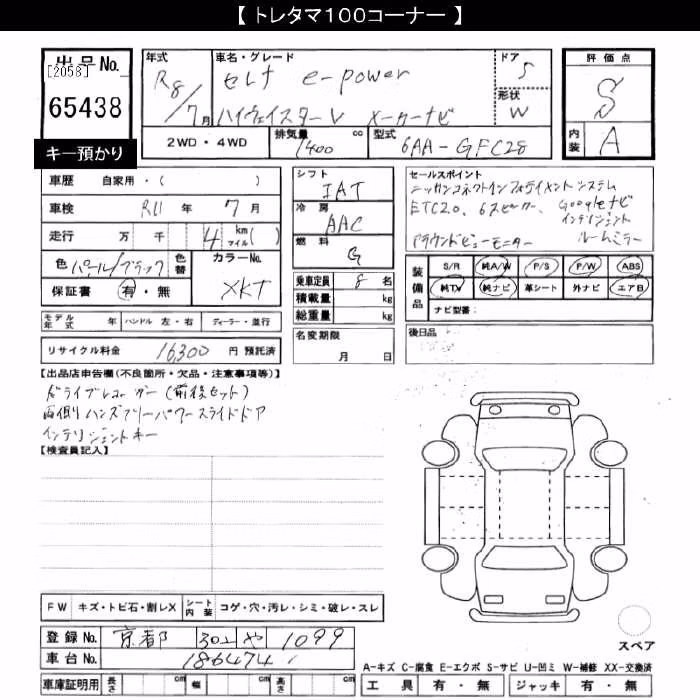 【 トレタマ100コーナー 】
出品No.
[2058]
65438
キー預かり
年式 車名・グレード ドア 評価点
R8/7月 セレナ e-power 5 S
ハイウェイスターV メーカーナビ 形状 W
2WD・4WD 排気量 1400 cc 型式 6AA-GFC28 内装 A
車歴 自家用・( )
車検 R11年 7月
走行 万 千 4 km マイル( )
色 パール/ブラック 色替 カラーNo. XKT
保証書 有・無
モデル年式 年 ハンドル 左・右 ディーラー・並行
リサイクル料金 16,300 円 預託済
シフト IAT
冷房 AAC
燃料 G
乗車定員 8 名
積載量 kg
総重量 kg
名変期限
月 日
セールスポイント
ニッサンコネクトインフォテイメントシステム
ETC2.0、6スピーカー、Googleナビ
インテリジェント
アラウンドビューモニター ルームミラー
装備品 S/R 純A/W P/S P/W ABS
純TV 純ナビ 革シート 外ナビ エアB
ナビ型番:
後日品
【出品店申告欄(不良箇所・欠品・注意事項等)】
ドライブレコーダー(前後セット)
両側ハンズフリーパワースライドドア
インテリジェントキー
【検査員記入】
FW キズ・トビ石・割レX シート内装 コゲ・穴・汚レ・シミ・破レ・スレ
登録No. 京都 301 や 1099
車台No. 186474
車庫証明用 長さ cm 幅 cm 高さ cm
スペア
A-キズ C-腐食 E-エクボ S-サビ U-凹ミ W-補修 XX-交換済
工具 有・無 ジャッキ 有・無